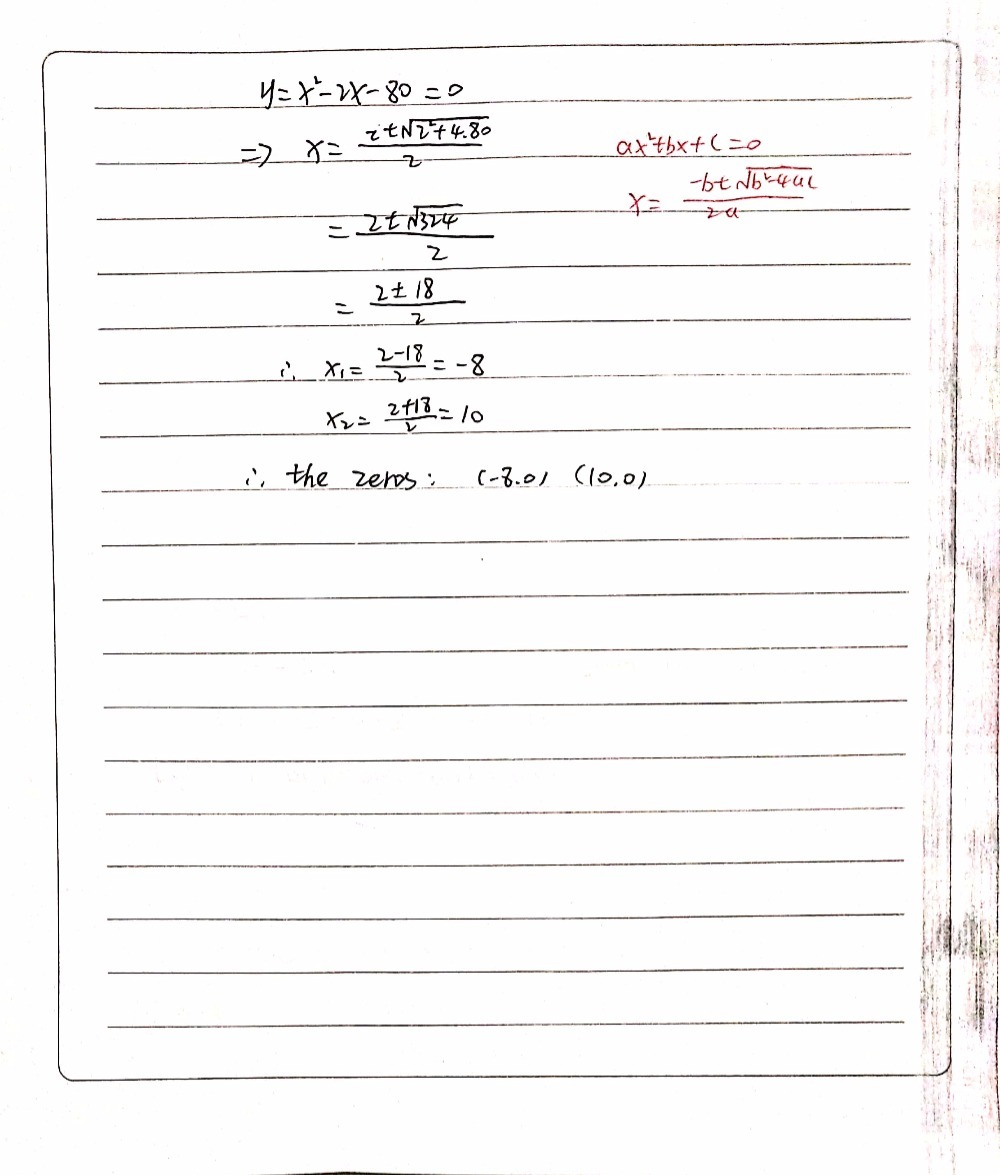 y = x² - 2x - 80 = 0
⇒ x = (2 ± √(2² + 4·80)) / 2
ax² + bx + c = 0
x = (-b ± √(b² - 4ac)) / 2a
= (2 ± √324) / 2
= (2 ± 18) / 2
∴ x₁ = (2-18)/2 = -8
x₂ = (2+18)/2 = 10
∴ the zeros: (-8.0) (10,0)